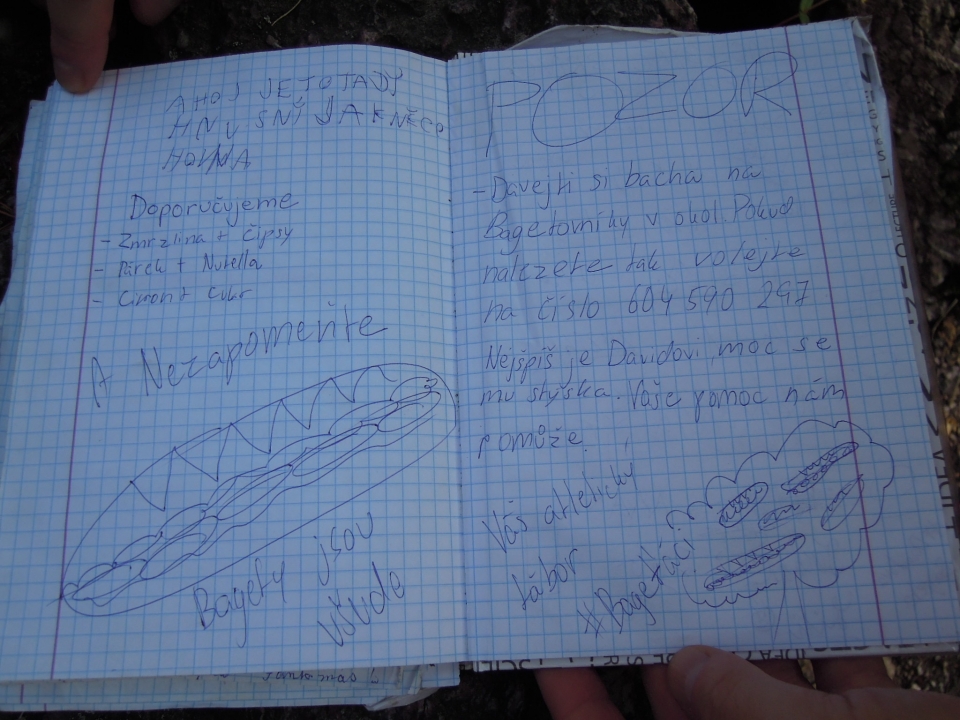 AHOJ JE TO TADY
HNUSNÝ JAK NĚCO
Doporučujeme
- Zmrzlina + čipsy
- Párek + Nutella
- Citron + Cukr
A Nezapomeňte
Bagety jsou
všude
POZOR
- Davejti si bacha na
Bagetovníky v okol. Pokud
naleznete tak volejte
na číslo 604 590 297
Nejspíš je Davidovi moc se
mu stýská. Vaše pomoc nám
pomůže.
Váš atletický
tábor
#Bageťáci